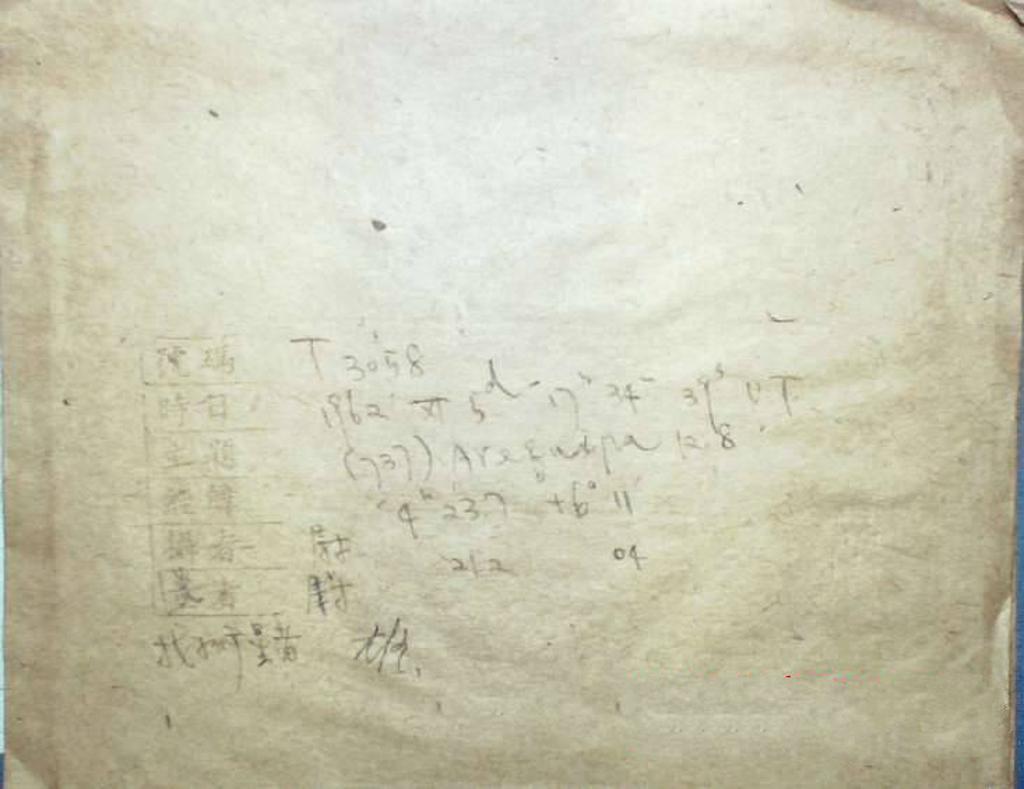 號碼 T 3058
時日 1962 VI 5ᵈ-17ʰ 34ᵐ 39ˢ UT
主題 (737) Arequipa 12.8
經緯 4ʰ 237 +6° 11
攝者 212 04
者
找行星者